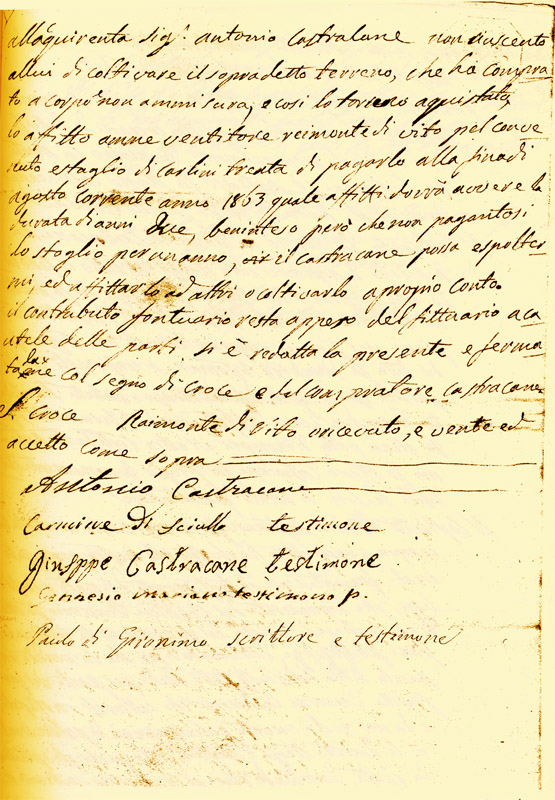 all'aquirenta sig.r antonio Castralane non riuscento
allui di coltivare il sopradetto terreno, che ha compra-
to a corpo non ammisura, e così lo terreno aquistato,
lo affitto amme ventitore reimonte di vito pel conve
nuto estaglio di carlini trenta di pagarlo alla fina di
agosto corrente anno 1863 quale affitti dovrà avvere la
durata di anni Due, beninteso però che non pagantosi
lo staglio per un anno, il castracane possa espeller
mi, ed affittarlo ad altri o coltivarlo a proprio conto.
il contributo fontuario resta appero del fittuario a ca
utele delle parti si è redatta la presente e ferma
ta col segno di croce e del compratore castracane
Croce Raimonte di Vito o ricevuto, e vente ed
accetto come sopra
Antonio Castracane
Carmine di sciullo testimone
Giuseppe Castracane testimone
Gennesio mariano testimono p.
Paulo di Gironimo scrittore e testimone